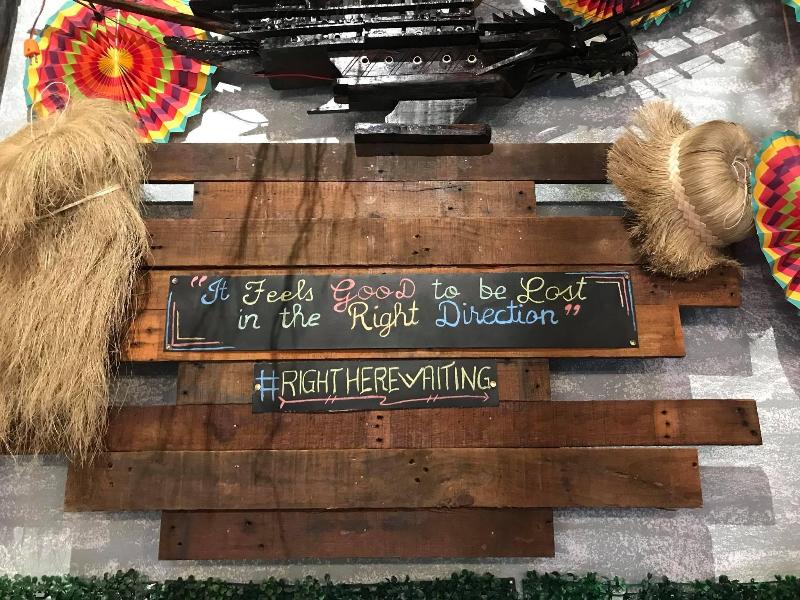 "It Feels GooD to be Lost
in the Right Direction"
#RIGHTHEREWAITING